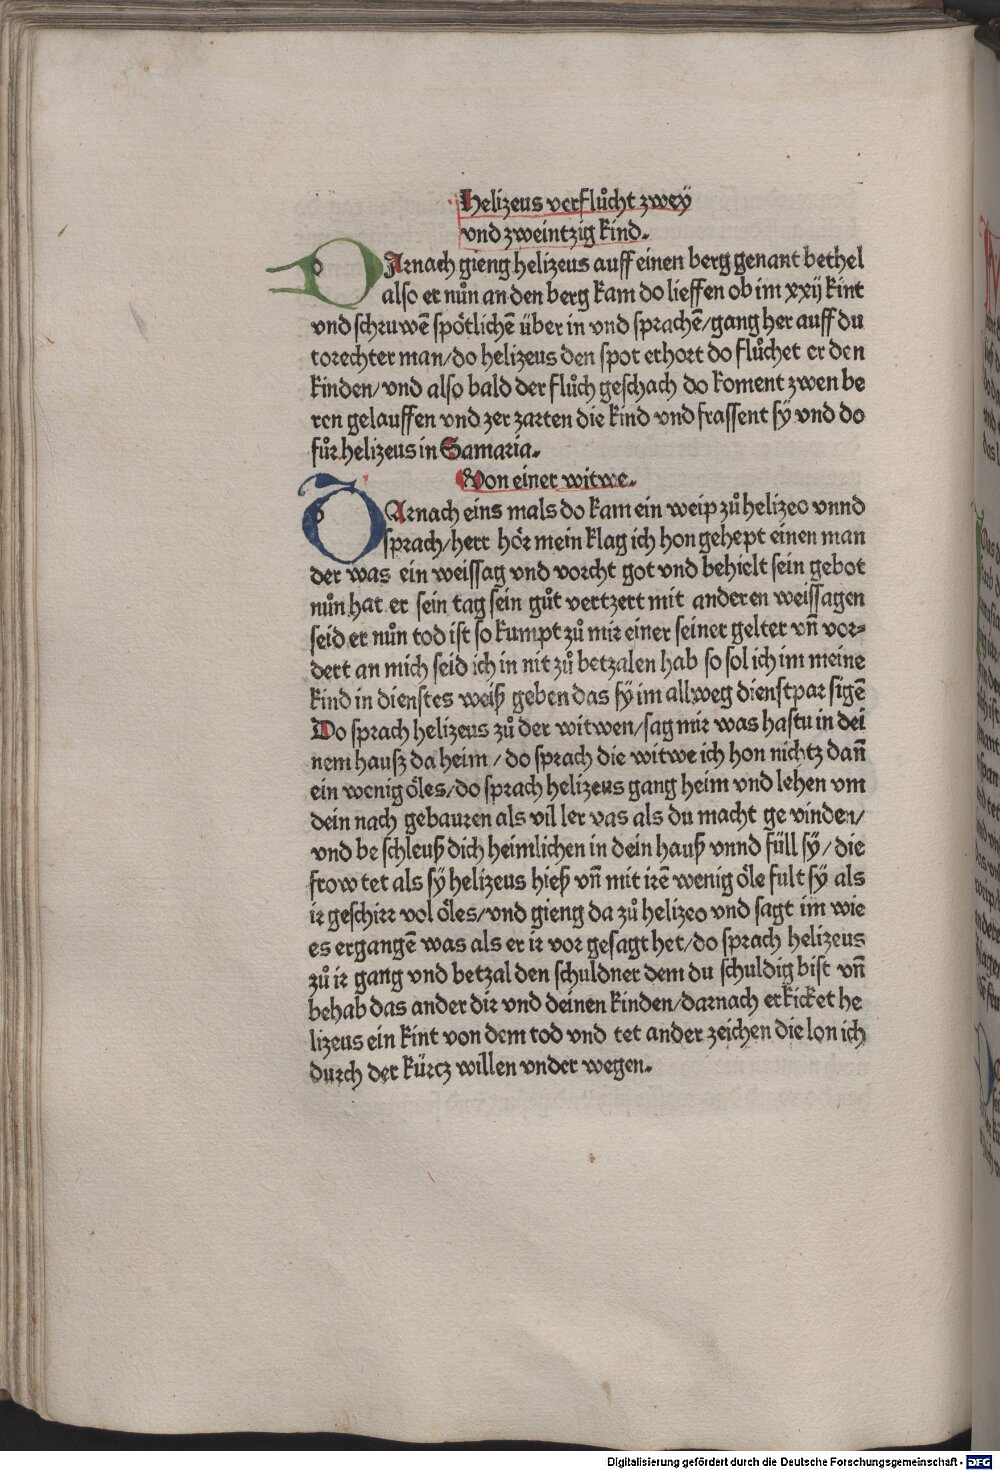 Helizeus verflůcht zweÿ
vnd zweintzig kind.
DArnach gieng helizeus auff einen berg genant bethel
also er nůn an den berg kam do lieffen ob im xxij kint
vnd schruwē spötlichē über in vnd sprachē/gang her auff du
torechter man/do helizeus den spot erhort do flůchet er den
kinden/vnd also bald der flůch geschach do koment zwen be
ren gelauffen vnd zer zarten die kind vnd frassent sÿ vnd do
fůr helizeus in Samaria.
Von einer witwe.
DArnach eins mals do kam ein weip zů helizeo vnnd
sprach/herr hör mein klag ich hon gehept einen man
der was ein weissag vnd vorcht got vnd behielt sein gebot
nůn hat er sein tag sein gůt vertzert mit anderen weissagen
seid er nůn tod ist so kumpt zů mir einer seiner gelter vñ vor⸗
dert an mich seid ich in nit zů betzalen hab so sol ich im meine
kind in dienstes weiß geben das sÿ im allweg dienstpar sigē
Do sprach helizeus zů der witwen/sag mir was hastu in dei
nem hausz da heim / do sprach die witwe ich hon nichtz dañ
ein wenig öles/do sprach helizeus gang heim vnd lehen vm
dein nach gebauren als vil ler vas als du macht ge vinden/
vnd be schleuß dich heimlichen in dein hauß vnnd füll sÿ/die
frow tet als sÿ helizeus hieß vñ mit irē wenig öle fult sÿ als
ir geschirr vol öles/vnd gieng da zů helizeo vnd sagt im wie
es ergangē was als er ir vor gesagt het/do sprach helizeus
zů ir gang vnd betzal den schuldner dem du schuldig bist vñ
behab das ander dir vnd deinen kinden/darnach erkicket he
lizeus ein kint von dem tod vnd tet ander zeichen die lon ich
durch der kürcz willen vnder wegen.
Digitalisierung gefördert durch die Deutsche Forschungsgemeinschaft - DFG